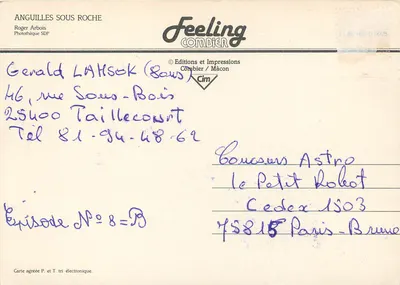 ANGUILLES SOUS ROCHE
Roger Arbois
Photothèque SDP
Feeling
COMBIER
© Editions et Impressions
Combier / Mâcon
Cim
Gerald LAMSOK (Sous)
46, rue Sous-Bois
25400 Taillecourt
Tel 81-94-48-62
Concours Astro
le Petit Robot
Cedex 1503
75815 Paris-Brune
Episode N° 8=B
Carte agréée P. et T. tri électronique.